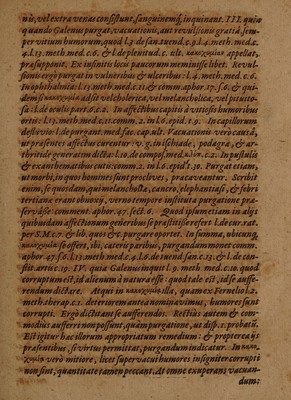 nis, vel extra venae consistunt, sanguinemq; inquinant. III. quia
quando Galenus purgat, vacuationis, aut revulsionis gratiâ, sem-
per vitium humorum, quod l.3. de san. tuend. c.9. l.4. meth. med. c.
4. l.13. meth. med. c.6. & l. de plenitud. c. ult. κακοχυμίαν appellat,
praesupponit. Ex infinitis locis paucorum meminisse libet. Revul-
sionis ergò purgat in vulneribus & ulceribus: l.4. meth. med. c.6.
In ophthalmia: l.13. meth. med. c.11. & comm. aphor. 17. s.6. & qui-
dem si κακοχυμία adsit vel cholerica, vel melancholica, vel pituito-
sa: l. de oculis part. 6. c.2. In affectibus capitis à vitiosis humoribus
ortis: l.13. meth. med. c.11. comm. 2. in l.6. epid. t.9. In capillorum
defluvio: l. de purgant. med. fac. cap. ult. Vacuationis verò causâ,
ut praesentes affectus curentur: v.g. in ischiade, podagra, & ar-
thritide generatim dicta: l.10. de compos. med. c.2. In pustulis
& exanthematibus cutis: comm. 2. in l.6. epid. t.30. Purgat etiam,
ut morbi, in quos homines sunt proclives, praecaveantur. Scribit
enim, se quosdam, qui melancholia, cancro, elephantiasi, & febri
tertianae erant obnoxy, verno tempore instituta purgatione prae-
servâsse: comment. aphor. 47. sect. 6. Quod ipsum etiam in alijs
quibusdam affectionum generibus se praestitisse refert l. de cur. rat.
per S.M. c.7. & lib. quos & c. purgare oportet. In summa, ubicunq;
κακοχυμία se offert, ibi, caeteris paribus, purgandum monet comm.
aphor. 47. s.6. l.13. meth. med. c.4. l.6. de tuend. san. c.13. & l. de con-
stit. art. c.19. IV. quia Galenus inquit l.9. meth. med. c.10. quod
corruptum est, id alienum à natura esse: quod tale est, id & aufe-
rendum dictare. Atqui in κακοχυμία illa, quam ex Fernelio l.2.
meth. therap. c.1. deteriorem antea nominavimus, humores sunt
corrupti. Ergò dictant se auferendos. Rectiùs autem & com-
modiùs auferri non possunt, quàm purgatione, ut disp. 1. probatû.
Est igitur hac illorum appropriatum remedium: & propterea ijs
praesentibus, si virtus permittat, purgandum indicatur. In κακο-
χυμία verò mitiore, licet supervacui humores insigniter corrupti
non sint, quantitate tamen peccant. At omne exuperans vacuan-
dum: